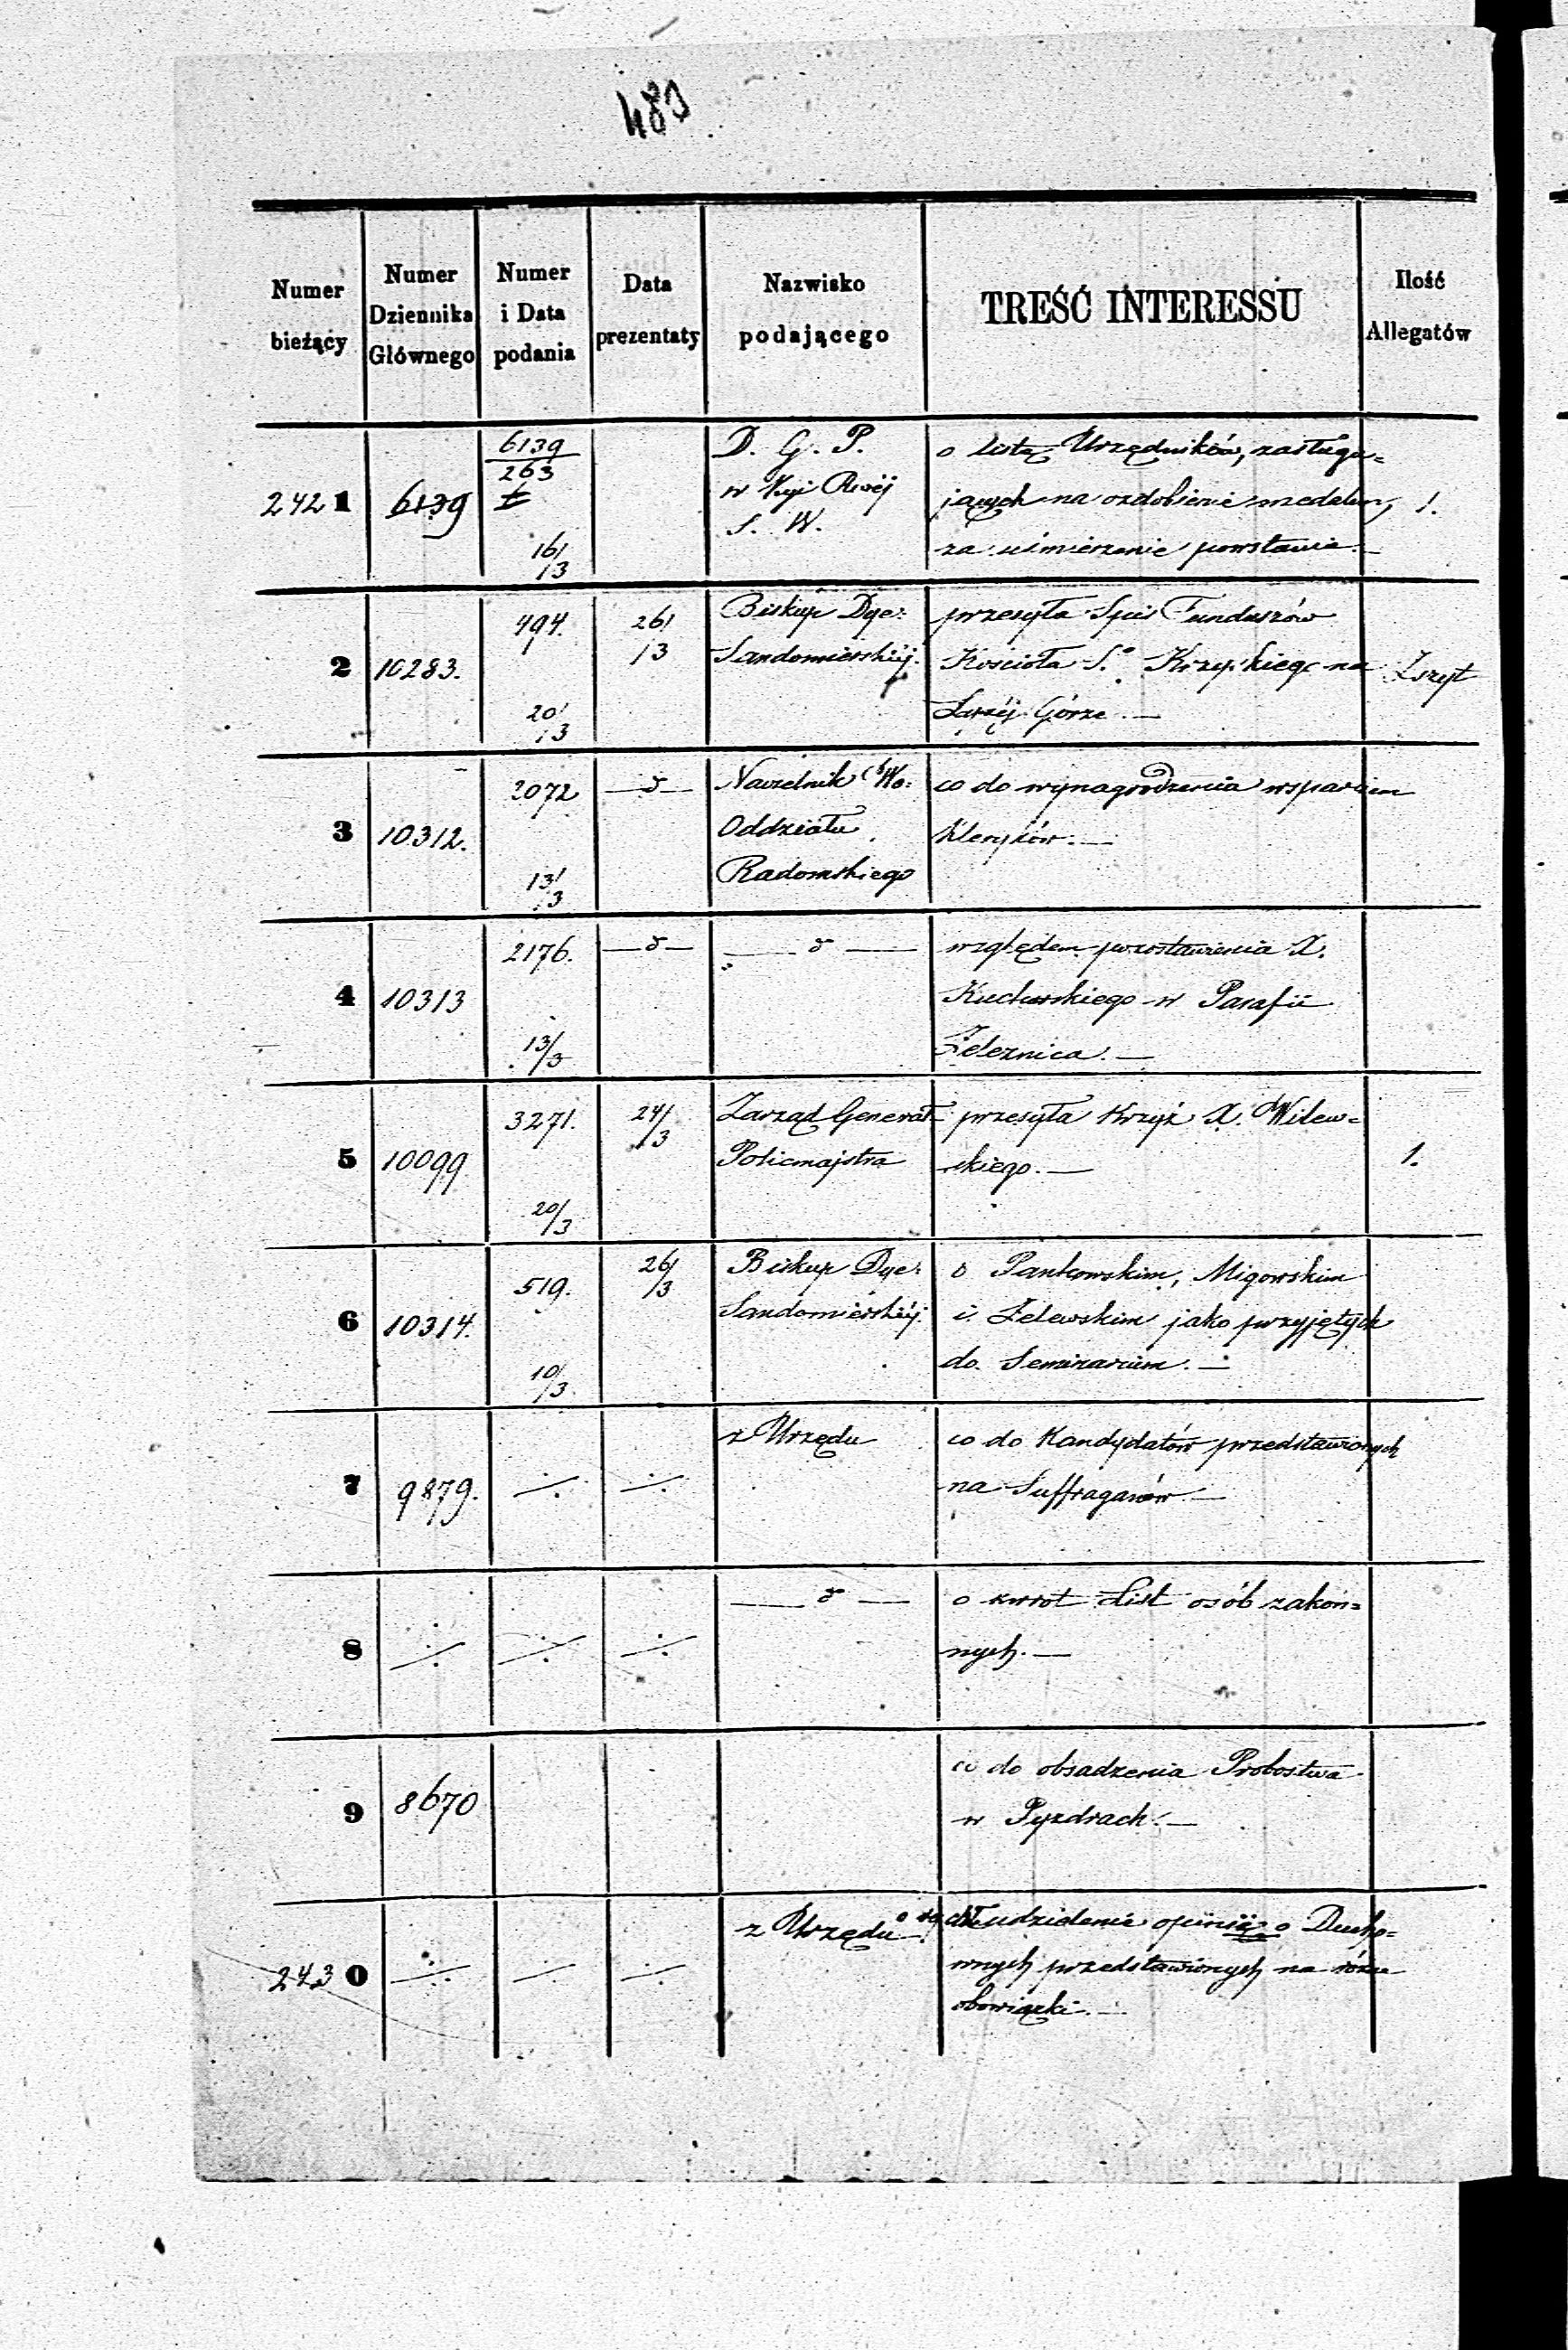 483
Numer bieżący
Numer Dziennika Głównego
Numer i Data podania
Data prezentaty
Nazwisko podającego
TREŚĆ INTERESSU
Ilość Allegatów
2421
6139
6139
263
16/3
D. G. P.
w Kyi Rwéj
S. W.
o listę Urzędników, zasługu=
jących na ozdobienie medalem,
za uśmierzenie powstania.—
1.
2
10283.
494.
20/3
26/3
Biskup Dye:
Sandomierskiéj.
przesyła Spis Funduszów
Kościoła S.º Krzyskiego na
Łyséj Górze.—
Zszyt
3
10312.
2072
13/3
—d—
Naczelnik Wo:
Oddziału
Radomskiego
co do wynagrodzenia wsparciem
Kleryków.—
4
10313
2176.
13/3
—d—
—d—
względem pozostawienia X.
Kucharskiego w Parafii
Żeleznica.—
5
10099
3271.
20/3
24/3
Zarząd Generał
Policmajstra
przesyła Krzyż X. Wilew=
skiego.—
1.
6
10314.
519.
10/3
26/3
Biskup Dye:
Sandomierskiéj.
o Pankowskim, Migowskim
i Zelewskim jako przyjętych
do Seminarium.—
7
9879.
÷
÷
z Urzędu
co do Kandydatów przedstawionych
na Suffraganów.—
8
÷
÷
÷
—d—
o zwrot List osób zakon=
nych.—
9
8670
co do obsadzenia Probostwa
w Pyzdrach.—
2430
÷
÷
÷
z Urzędu
udzielenie opinii o Ducho=
wnych przedstawionych na różne
obowiązki.—